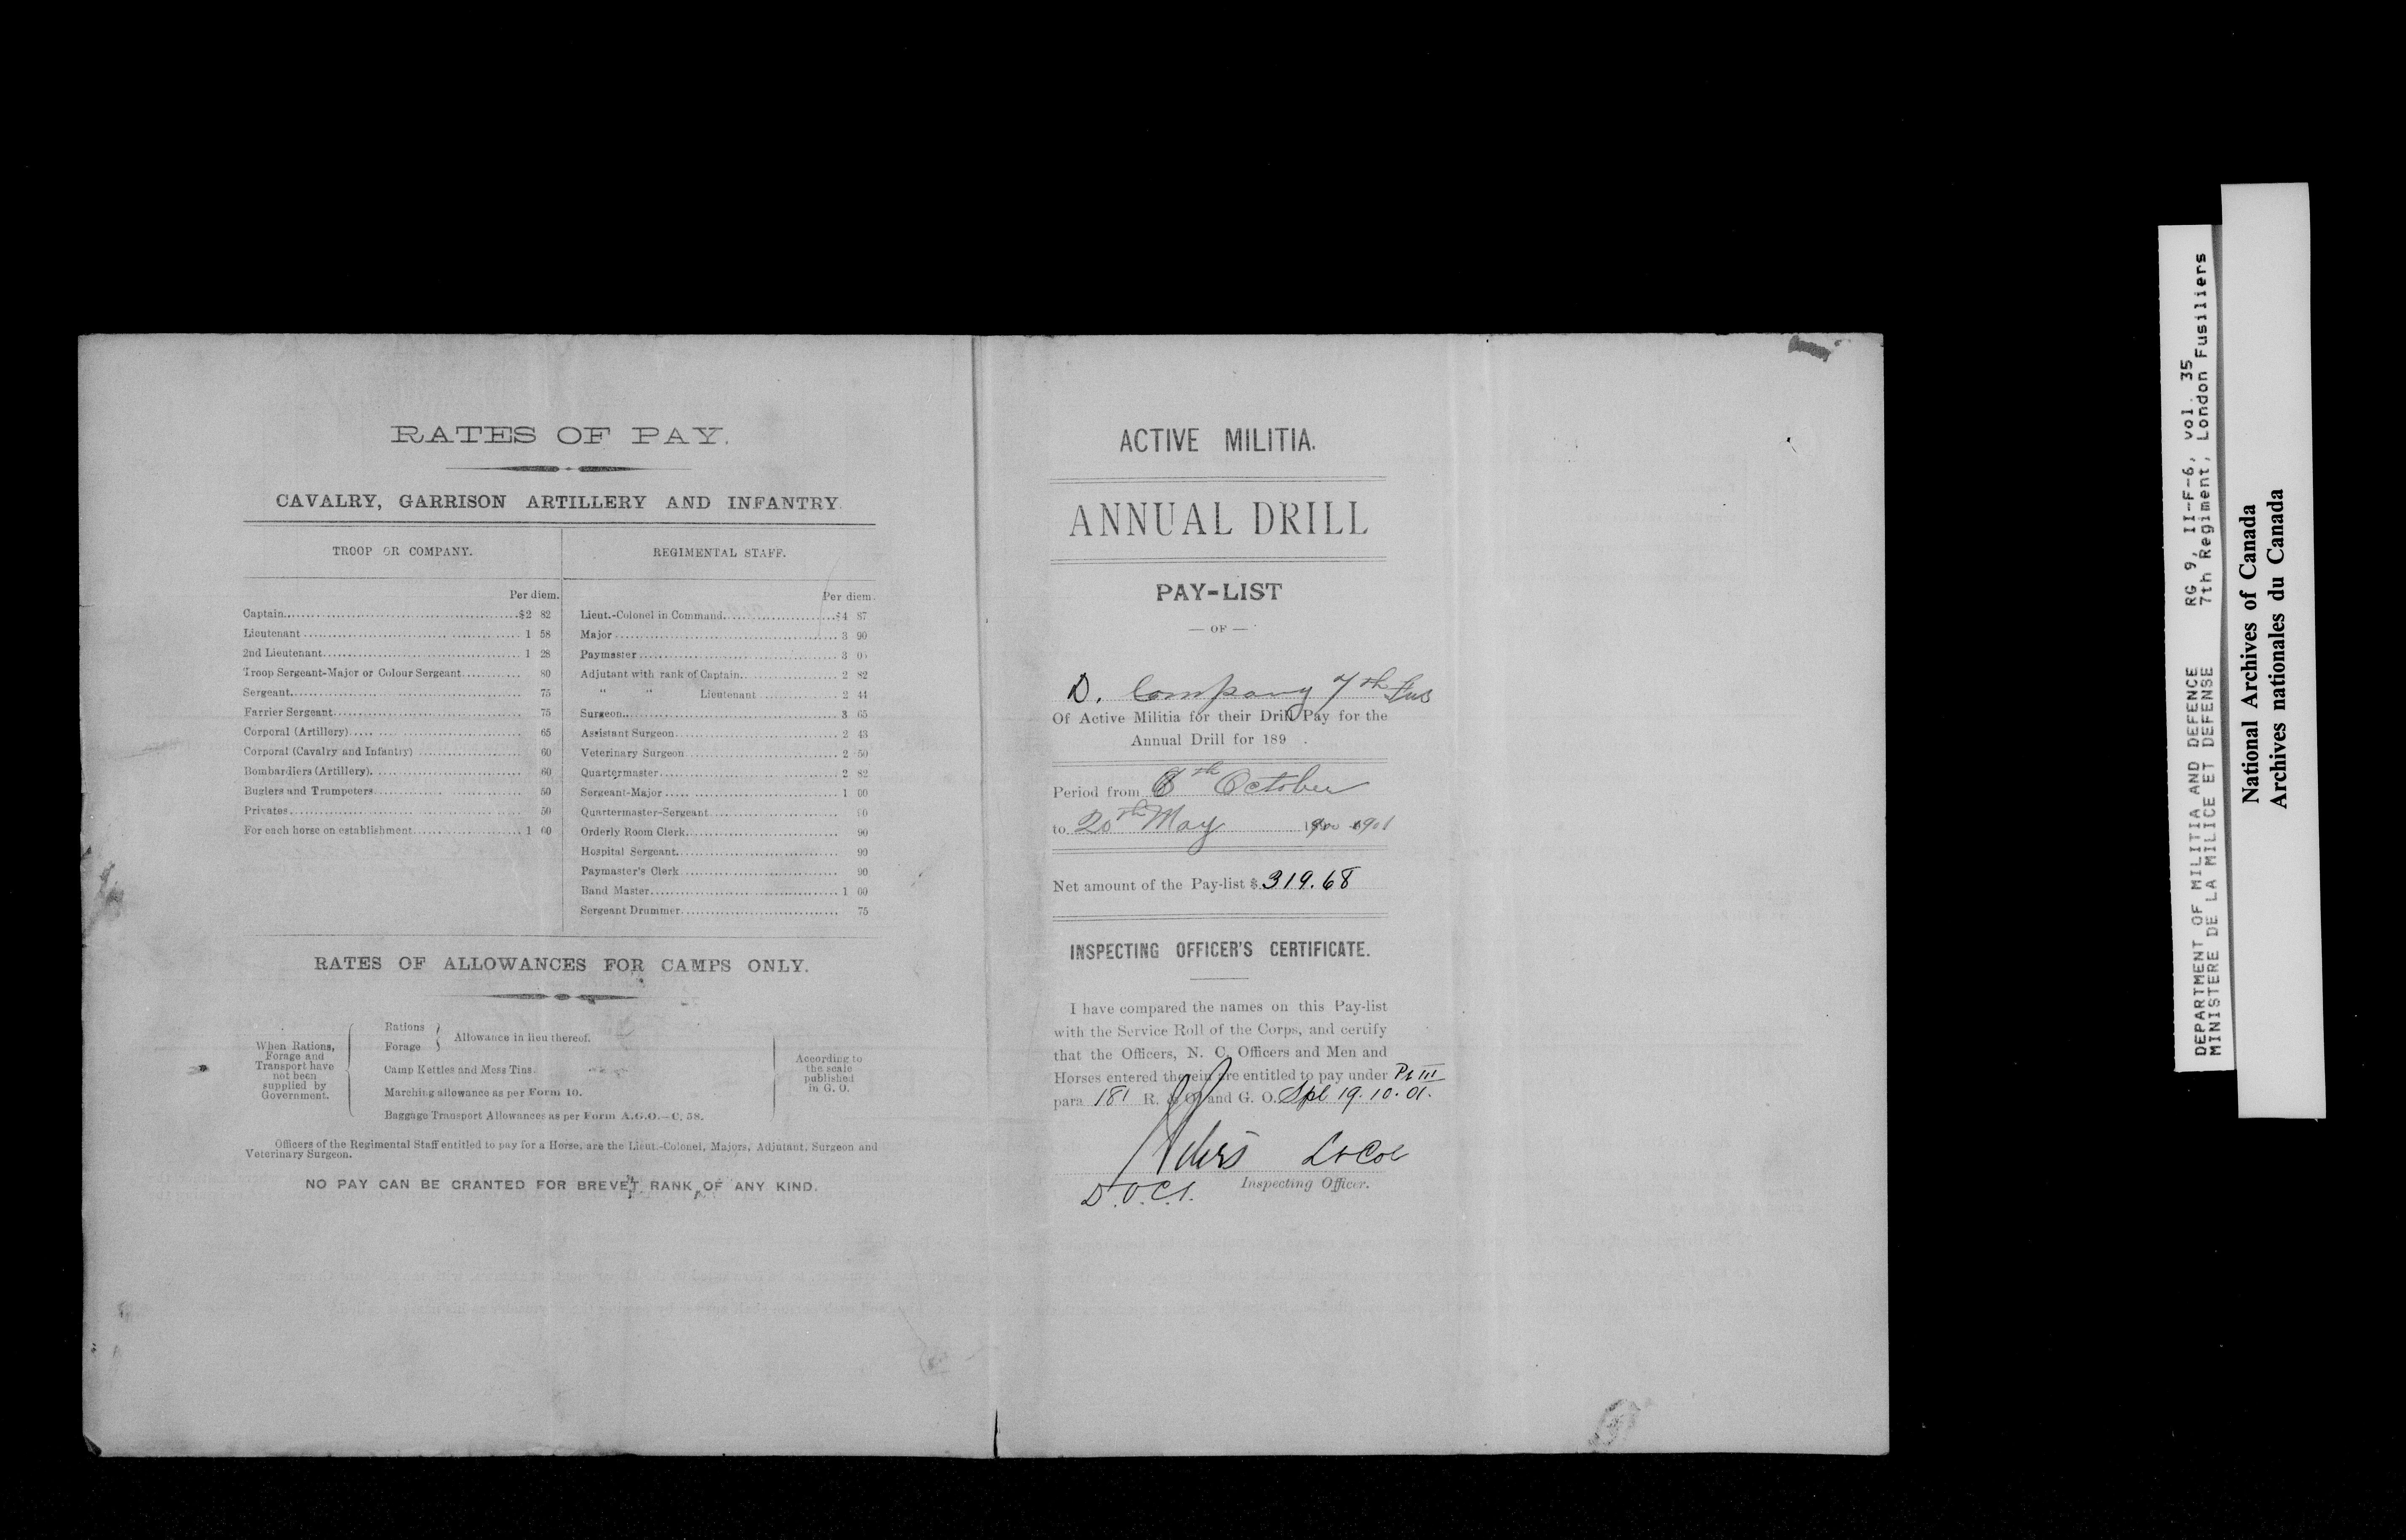 RATES OF PAY.
CAVALRY, GARRISON ARTILLERY AND INFANTRY.
TROOP OR COMPANY.
Per diem.
Captain........$2 82
Lieutenant........1 58
2nd Lieutenant........1 28
Troop Sergeant-Major or Colour Sergeant........80
Sergeant........75
Farrier Sergeant........75
Corporal (Artillery)........65
Corporal (Cavalry and Infantry)........60
Bombardiers (Artillery)........60
Buglers and Trumpeters........50
Privates........50
For each horse on establishment........1 00
REGIMENTAL STAFF.
Per diem.
Lieut.-Colonel in Command........$4 87
Major........3 90
Paymaster........3 05
Adjutant with rank of Captain........2 82
" " Lieutenant........2 44
Surgeon........3 65
Assistant Surgeon........2 43
Veterinary Surgeon........2 50
Quartermaster........2 82
Sergeant-Major........1 00
Quartermaster-Sergeant........90
Orderly Room Clerk........90
Hospital Sergeant........90
Paymaster's Clerk........90
Band Master........1 00
Sergeant Drummer........75
RATES OF ALLOWANCES FOR CAMPS ONLY.
When Rations,
Forage and
Transport have
not been
supplied by
Government.
Rations
Forage
Allowance in lieu thereof.
Camp Kettles and Mess Tins.
Marching allowance as per Form 10.
Baggage Transport Allowances as per Form A.G.O.—C. 58.
According to
the scale
published
in G. O.
Officers of the Regimental Staff entitled to pay for a Horse, are the Lieut.-Colonel, Majors, Adjutant, Surgeon and
Veterinary Surgeon.
NO PAY CAN BE GRANTED FOR BREVET RANK OF ANY KIND.
ACTIVE MILITIA.
ANNUAL DRILL
PAY-LIST
— OF —
D. Company 7th Fus
Of Active Militia for their Drill Pay for the
Annual Drill for 189 .
Period from 8th October
to 20th May 1900 1901
Net amount of the Pay-list $ 319.68
INSPECTING OFFICER'S CERTIFICATE.
I have compared the names on this Pay-list
with the Service Roll of the Corps, and certify
that the Officers, N. C. Officers and Men and
Horses entered therein are entitled to pay under Pt III
para 181 R. & O. and G. O. Spl 19.10.01.
Lt Col
D.O.C.1. Inspecting Officer.
DEPARTMENT OF MILITIA AND DEFENCE RG 9, II-F-6, vol. 35
MINISTERE DE LA MILICE ET DEFENSE 7th Regiment, London Fusiliers
National Archives of Canada
Archives nationales du Canada